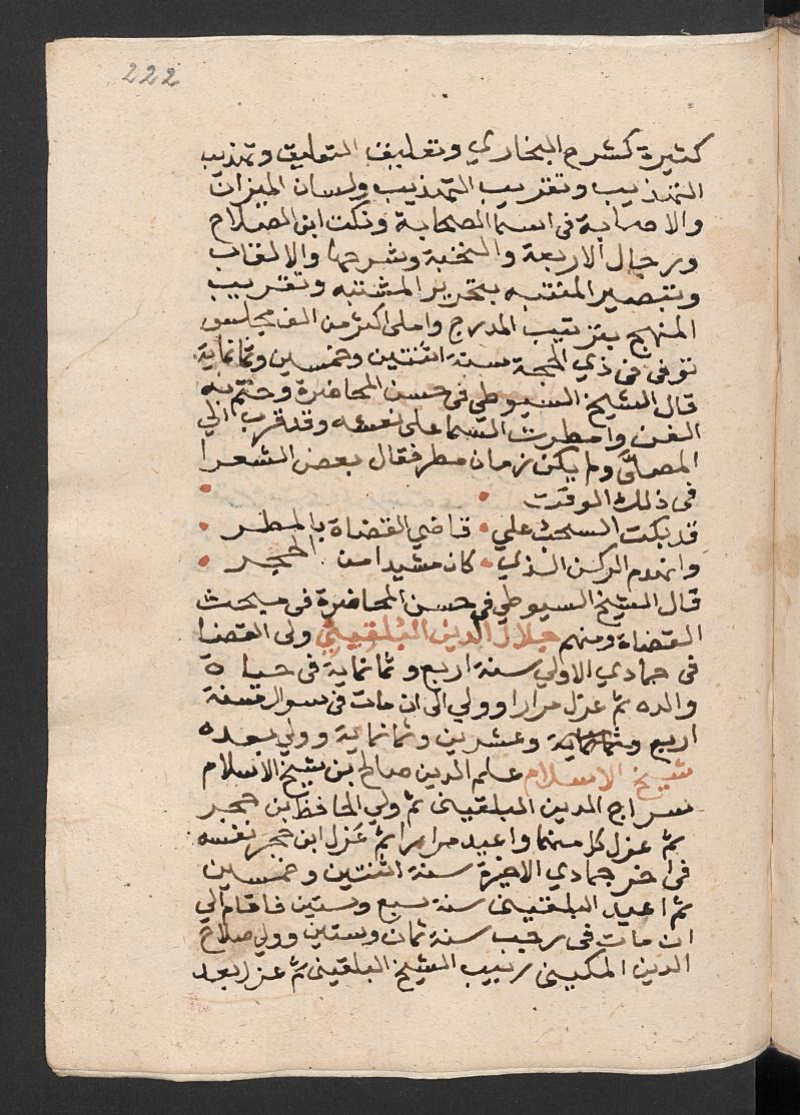 222
كثيرة كشرح البخاري وتعليق التعليق وتهذيب
التهذيب وتقريب التهذيب ولسان الميزان
والاصابة في اسما الصحابة ونكت ابن الصلاح
ورجال الاربعة والنخبة وشرحها والالقاب
وتبصير المنتبه بتحرير المشتبه وتقريب
المنهج بترتيب المدرج واملى اكثر من الف مجلس
توفي في ذي الحجة سنة اثنتين وخمسين وثمانماية
قال الشيخ السيوطي في حسن المحاضرة وختم به
الفن وامطرت السما على نعشه وقد قرب الي
المصلى ولم يكن زمان مطر فقال بعض الشعرا
في ذلك الوقت
قد بكت السحب علي • قاضي القضاة بالمطر •
وانهدم الركن الذي • كان مشيدا من الحجر •
قال الشيخ السيوطي في حسن المحاضرة في مبحث
القضاة ومنهم جلال الدين البلقيني ولى القضا
في جمادي الاولي سنة اربع وثمانماية في حياة
والده ثم عزل مرارا وولي الى ان مات في شوال سنة
اربع وعشرين وثمانماية وولي بعده
شيخ الاسلام علم الدين صالح بن شيخ الاسلام
سراج الدين البلقيني ثم ولي الحافظ بن حجر
ثم عزل كل منهما واعيد مرارا ثم عزل ابن حجر نفسه
في اخر جمادي الاخرة سنة اثنتين وخمسين
ثم اعيد البلقيني سنة سبع وستين فاقام الي
ان مات في رجب سنة ثمان وستين وولي صلاح
الدين المكيني ربيب الشيخ البلقيني ثم عزل بعد